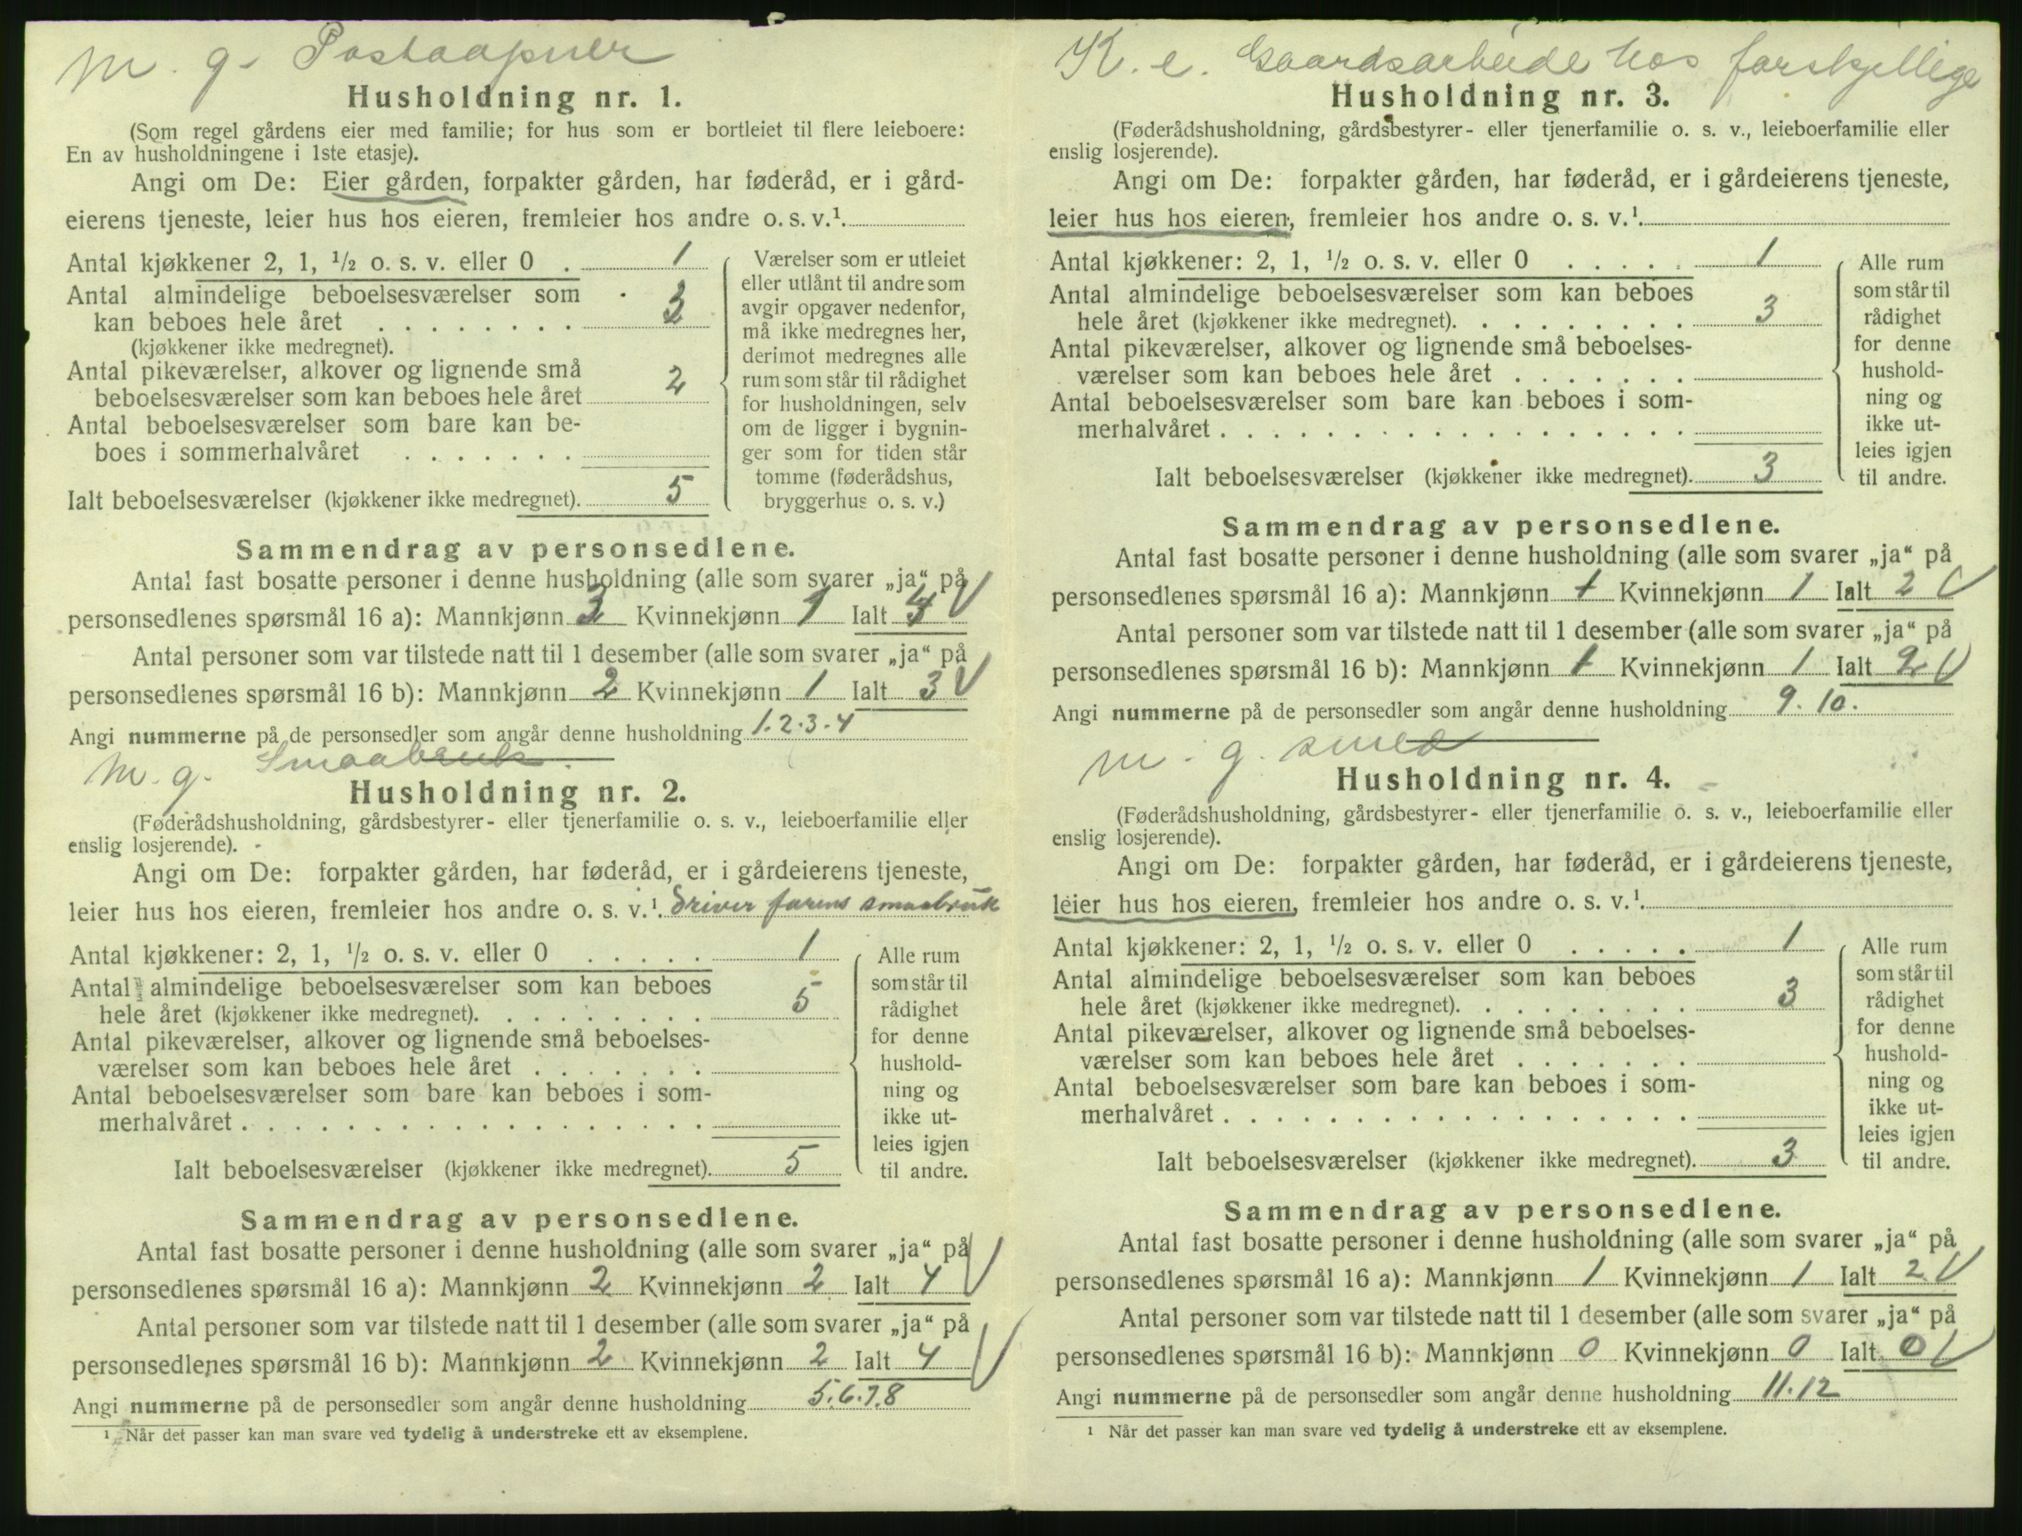 M. g. Postaapner
Husholdning nr. 1.
(Som regel gårdens eier med familie; for hus som er bortleiet til flere leieboere:
En av husholdningene i 1ste etasje).
Angi om De: Eier gården, forpakter gården, har føderåd, er i gård-
eierens tjeneste, leier hus hos eieren, fremleier hos andre o. s. v.¹
Antal kjøkkener 2, 1, ½ o. s. v. eller 0 . 1
Antal almindelige beboelsesværelser som
kan beboes hele året . . . . . . . . 3
(kjøkkener ikke medregnet).
Antal pikeværelser, alkover og lignende små
beboelsesværelser som kan beboes hele året 2
Antal beboelsesværelser som bare kan be-
boes i sommerhalvåret . . . . . . .
Ialt beboelsesværelser (kjøkkener ikke medregnet). 5
Værelser som er utleiet
eller utlånt til andre som
avgir opgaver nedenfor,
må ikke medregnes her,
derimot medregnes alle
rum som står til rådighet
for husholdningen, selv
om de ligger i bygnin-
ger som for tiden står
tomme (føderådshus,
bryggerhus o. s. v.)
Sammendrag av personsedlene.
Antal fast bosatte personer i denne husholdning (alle som svarer „ja“ på
personsedlenes spørsmål 16 a): Mannkjønn 3 Kvinnekjønn 1 Ialt 4
Antal personer som var tilstede natt til 1 desember (alle som svarer „ja“ på
personsedlenes spørsmål 16 b): Mannkjønn 2 Kvinnekjønn 1 Ialt 3
Angi nummerne på de personsedler som angår denne husholdning 1.2.3.4
M. g. Smaabruk.
Husholdning nr. 2.
(Føderådshusholdning, gårdsbestyrer- eller tjenerfamilie o. s. v., leieboerfamilie eller
enslig losjerende).
Angi om De: forpakter gården, har føderåd, er i gårdeierens tjeneste,
leier hus hos eieren, fremleier hos andre o. s. v.¹ driver farens smaabruk
Antal kjøkkener: 2, 1, ½ o. s. v. eller 0 . . . . . 1
Antal almindelige beboelsesværelser som kan beboes
hele året (kjøkkener ikke medregnet). . . . . . . . . 5
Antal pikeværelser, alkover og lignende små beboelses-
værelser som kan beboes hele året . . . . . . .
Antal beboelsesværelser som bare kan beboes i som-
merhalvåret . . . . . . . . . . . . . . . . . .
Ialt beboelsesværelser (kjøkkener ikke medregnet). 5
Alle rum
som står til
rådighet
for denne
hushold-
ning og
ikke ut-
leies igjen
til andre.
Sammendrag av personsedlene.
Antal fast bosatte personer i denne husholdning (alle som svarer „ja“ på
personsedlenes spørsmål 16 a): Mannkjønn 2 Kvinnekjønn 2 Ialt 4
Antal personer som var tilstede natt til 1 desember (alle som svarer „ja“ på
personsedlenes spørsmål 16 b): Mannkjønn 2 Kvinnekjønn 2 Ialt 4
Angi nummerne på de personsedler som angår denne husholdning 5.6.7.8
¹ Når det passer kan man svare ved tydelig å understreke ett av eksemplene.
K. e. Gaardsarbeide hos forskjellige
Husholdning nr. 3.
(Føderådshusholdning, gårdsbestyrer- eller tjenerfamilie o. s. v., leieboerfamilie eller
enslig losjerende).
Angi om De: forpakter gården, har føderåd, er i gårdeierens tjeneste,
leier hus hos eieren, fremleier hos andre o. s. v.¹
Antal kjøkkener: 2, 1, ½ o. s. v. eller 0 . . . . . 1
Antal almindelige beboelsesværelser som kan beboes
hele året (kjøkkener ikke medregnet). . . . . . . . . 3
Antal pikeværelser, alkover og lignende små beboelses-
værelser som kan beboes hele året . . . . . . .
Antal beboelsesværelser som bare kan beboes i som-
merhalvåret . . . . . . . . . . . . . . . . . .
Ialt beboelsesværelser (kjøkkener ikke medregnet). 3
Alle rum
som står til
rådighet
for denne
hushold-
ning og
ikke ut-
leies igjen
til andre.
Sammendrag av personsedlene.
Antal fast bosatte personer i denne husholdning (alle som svarer „ja“ på
personsedlenes spørsmål 16 a): Mannkjønn 1 Kvinnekjønn 1 Ialt 2
Antal personer som var tilstede natt til 1 desember (alle som svarer „ja“ på
personsedlenes spørsmål 16 b): Mannkjønn 1 Kvinnekjønn 1 Ialt 2
Angi nummerne på de personsedler som angår denne husholdning 9. 10.
M. g. smed
Husholdning nr. 4.
(Føderådshusholdning, gårdsbestyrer- eller tjenerfamilie o. s. v., leieboerfamilie eller
enslig losjerende).
Angi om De: forpakter gården, har føderåd, er i gårdeierens tjeneste,
leier hus hos eieren, fremleier hos andre o. s. v.¹
Antal kjøkkener: 2, 1, ½ o. s. v. eller 0 . . . . . 1
Antal almindelige beboelsesværelser som kan beboes
hele året (kjøkkener ikke medregnet). . . . . . . . . 3
Antal pikeværelser, alkover og lignende små beboelses-
værelser som kan beboes hele året . . . . . . .
Antal beboelsesværelser som bare kan beboes i som-
merhalvåret . . . . . . . . . . . . . . . . . .
Ialt beboelsesværelser (kjøkkener ikke medregnet). 3
Alle rum
som står til
rådighet
for denne
hushold-
ning og
ikke ut-
leies igjen
til andre.
Sammendrag av personsedlene.
Antal fast bosatte personer i denne husholdning (alle som svarer „ja“ på
personsedlenes spørsmål 16 a): Mannkjønn 1 Kvinnekjønn 1 Ialt 2
Antal personer som var tilstede natt til 1 desember (alle som svarer „ja“ på
personsedlenes spørsmål 16 b): Mannkjønn 0 Kvinnekjønn 0 Ialt 0
Angi nummerne på de personsedler som angår denne husholdning 11.12
¹ Når det passer kan man svare ved tydelig å understreke ett av eksemplene.